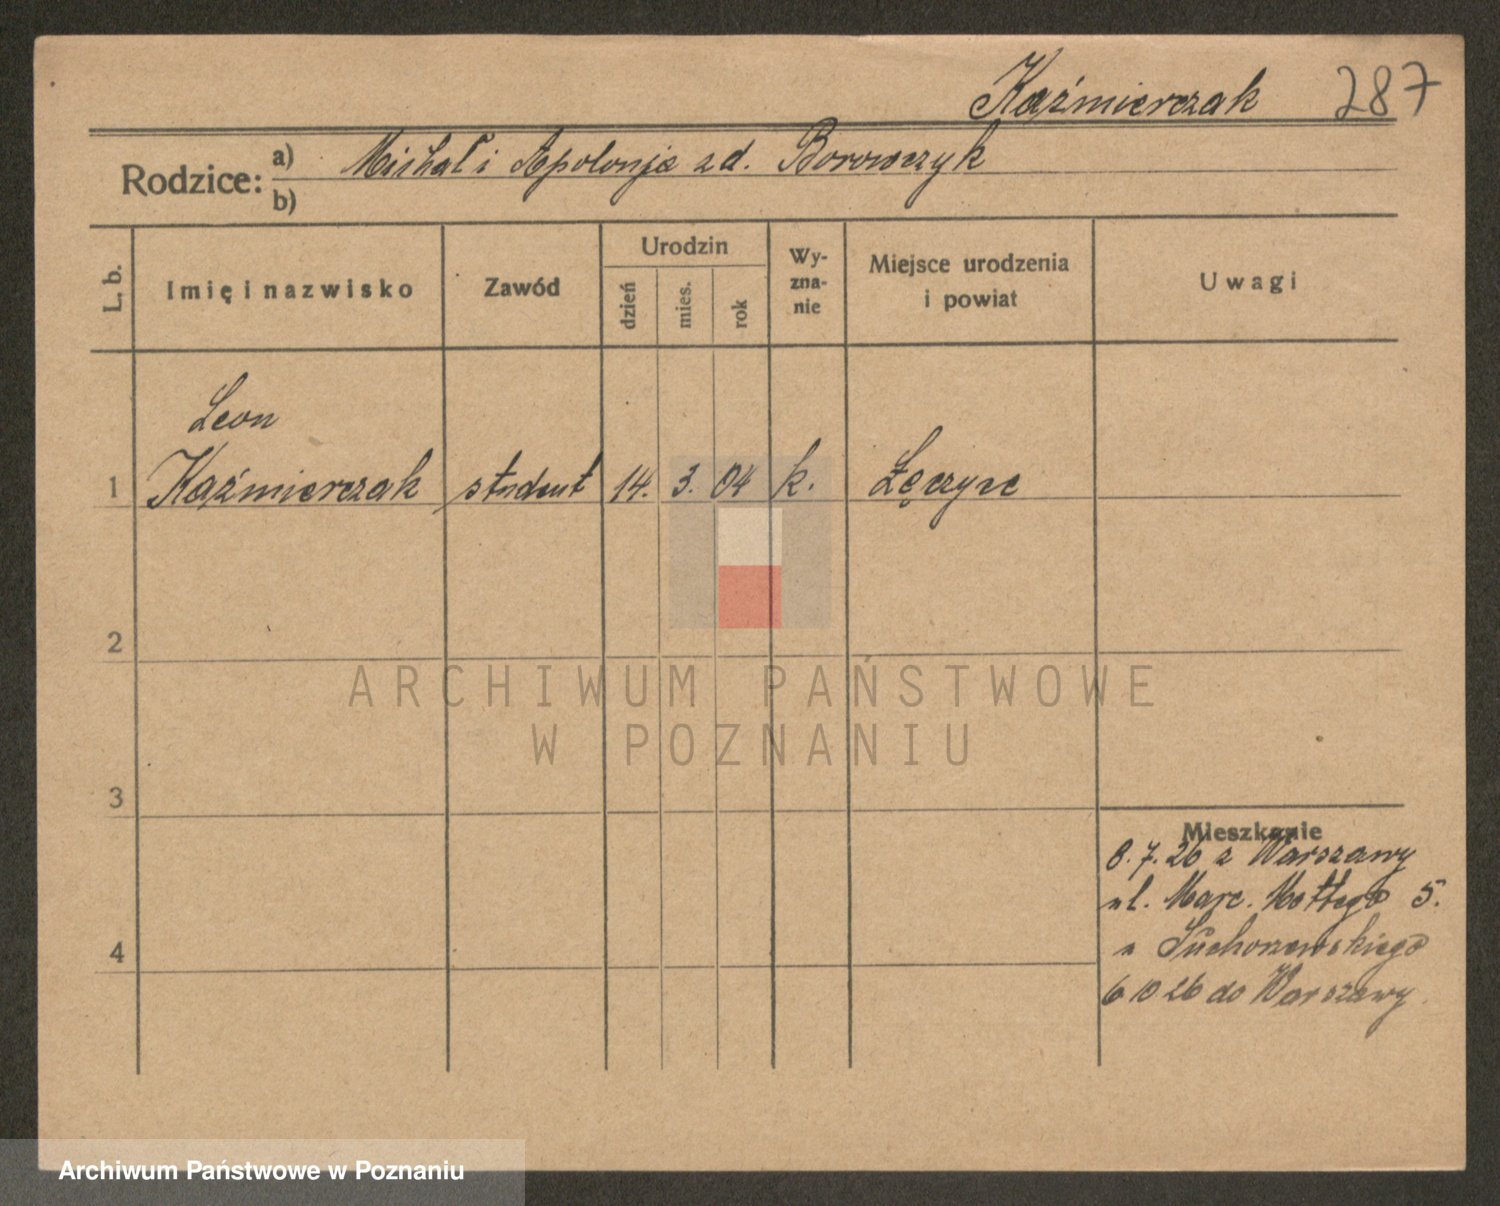 Kaźmierczak 287
Rodzice: a) Michał i Apolonja zd. Borowczyk
b)
L. b.
Imię i nazwisko
Zawód
Urodzin
dzień
mies.
rok
Wy-
zna-
nie
Miejsce urodzenia
i powiat
Uwagi
Leon
1 Kaźmierczak student 14. 3. 04 k. Łęczyce
2
3
4
Mieszkanie
8. 7. 26 z Warszawy
ul. Marc. Mottego 5.
u Suchorzewskiego
6 10 26 do Warszawy
ARCHIWUM PAŃSTWOWE
W POZNANIU
Archiwum Państwowe w Poznaniu